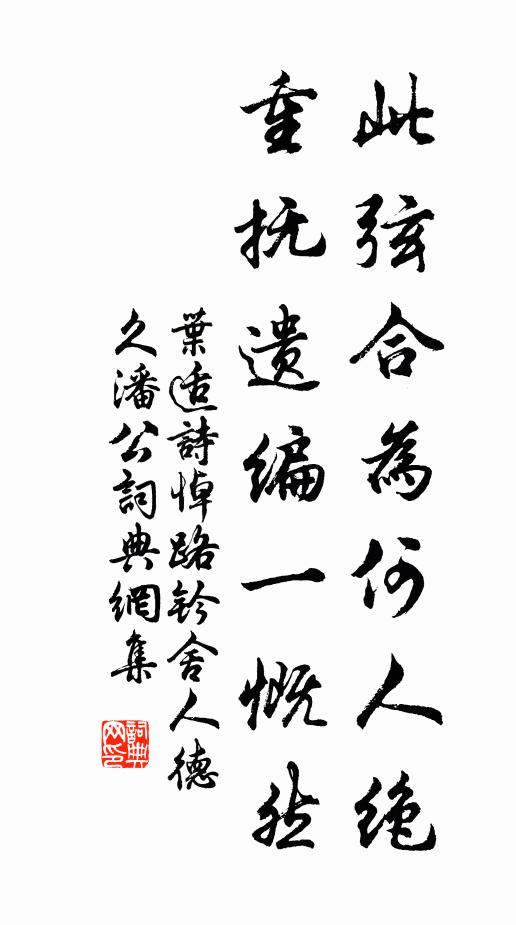 此弦合為何人绝
重抚遗编一慨然
葉适詩悼路鈐舍人德
久潘公詞典網集
詞典網印